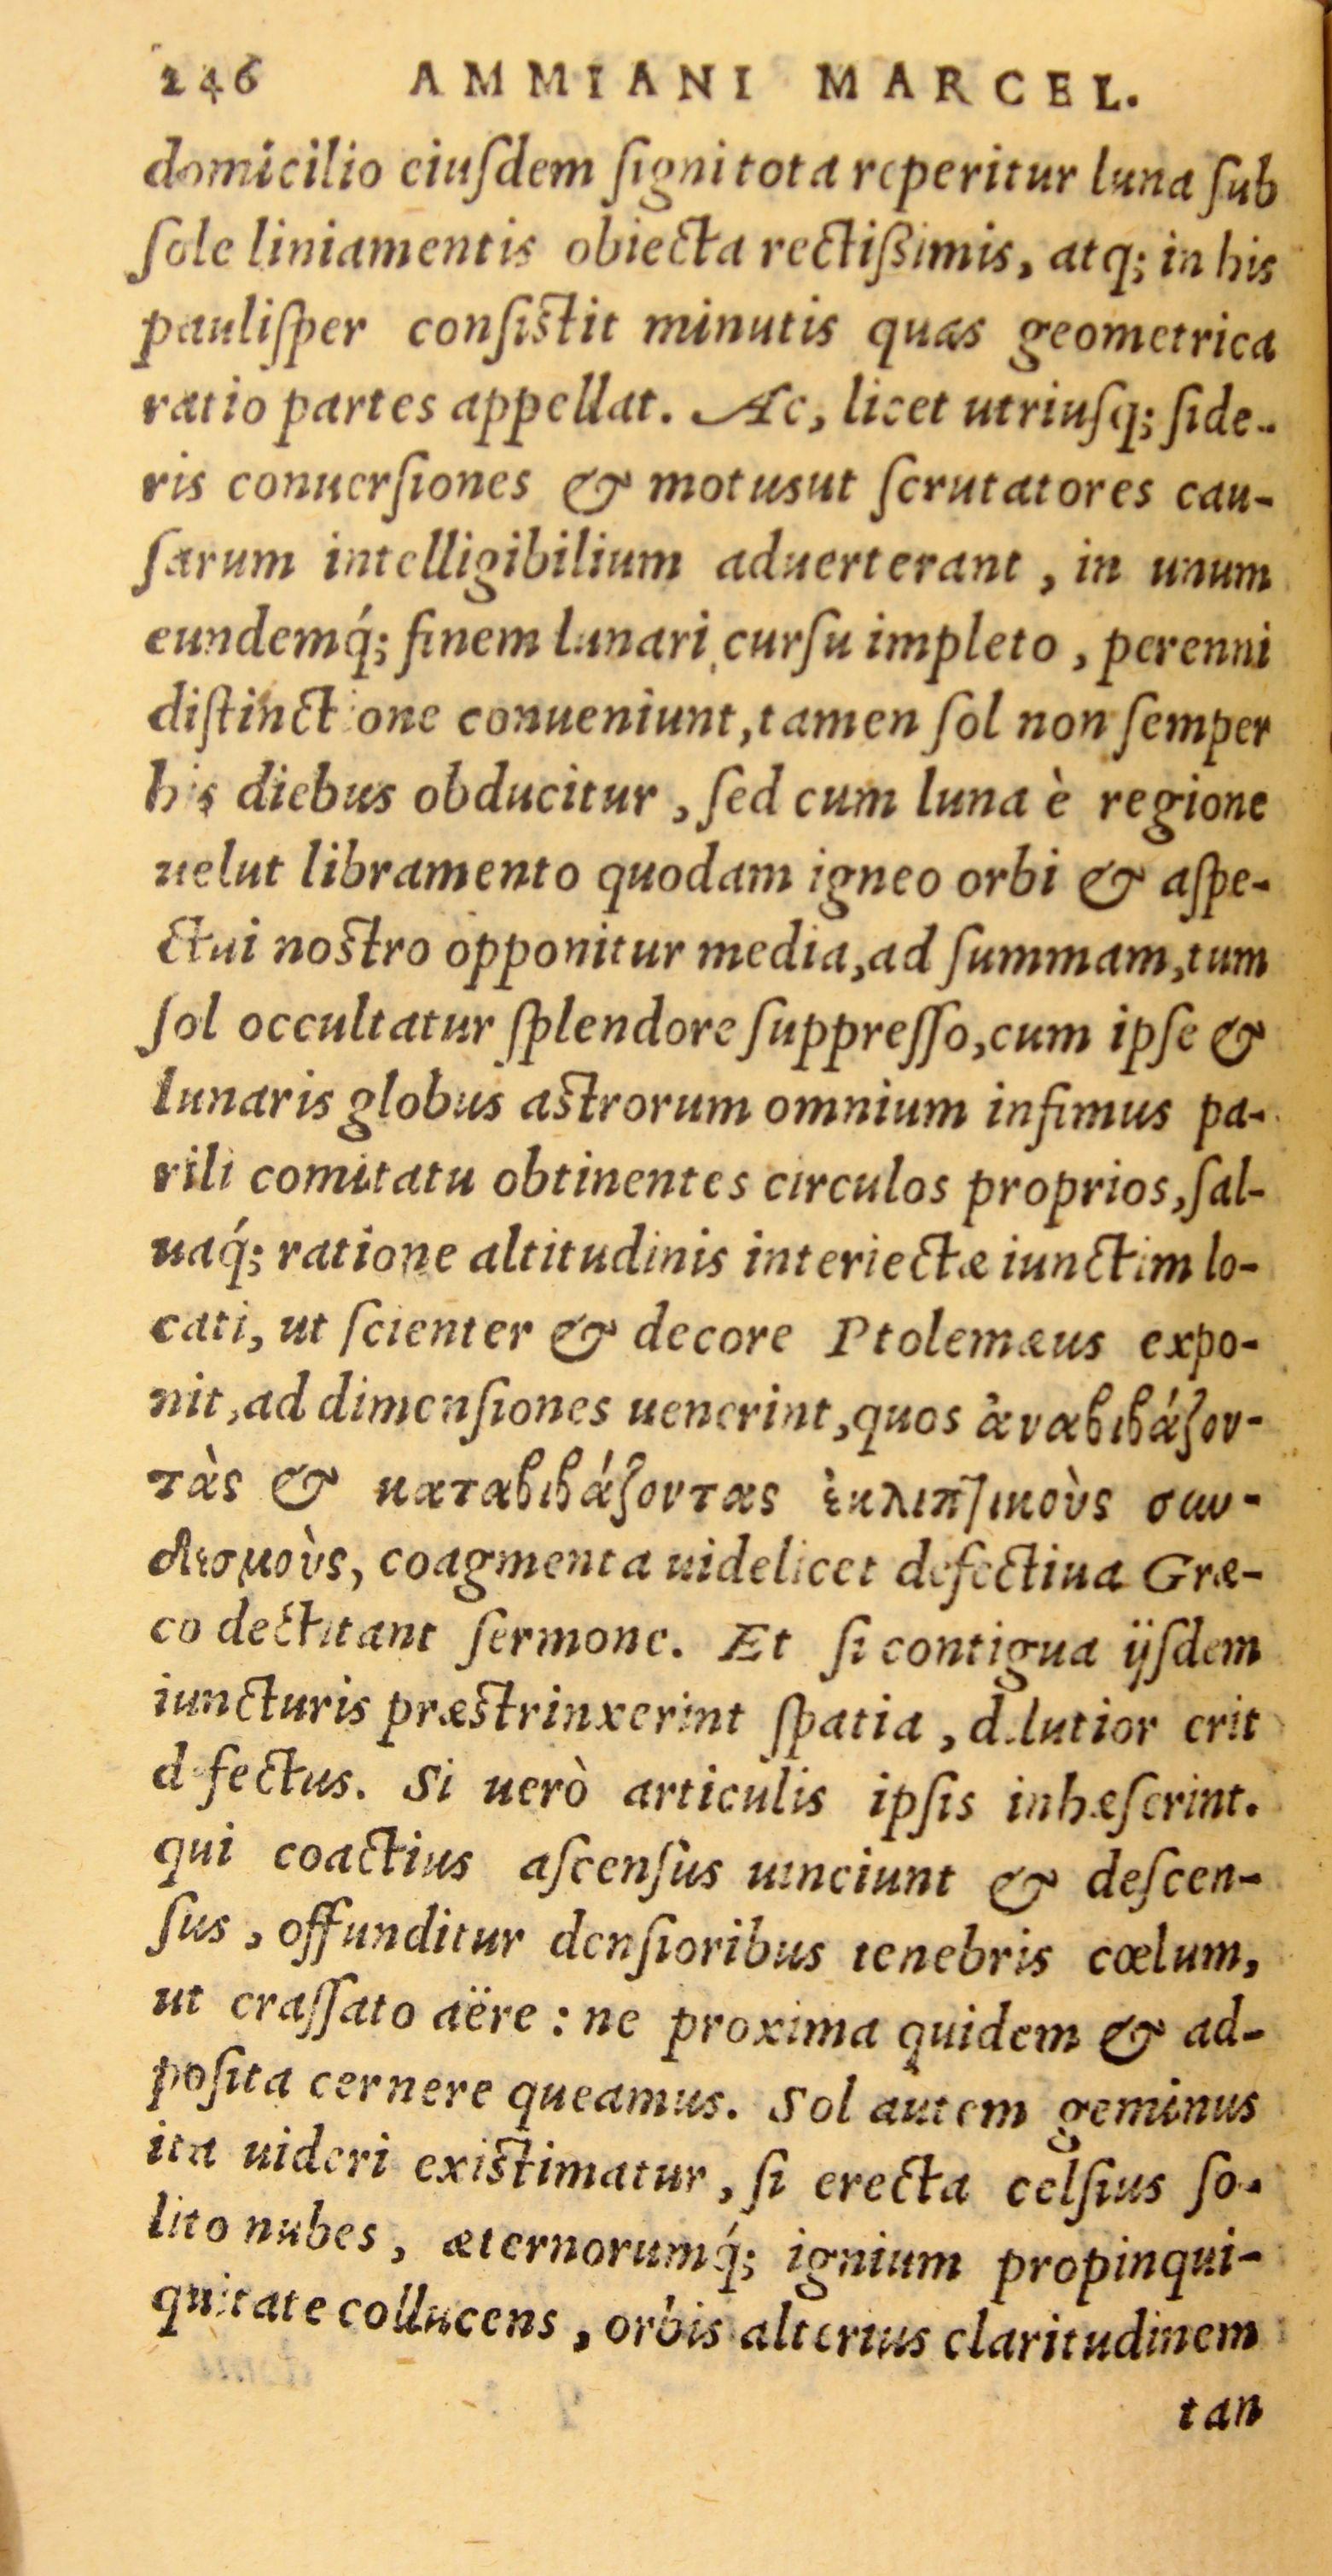 246 AMMIANI MARCEL.
domicilio eiuſdem ſigni tota reperitur luna ſub
ſole liniamentis obiecta rectiſſimis, atq; in his
pauliſper conſiſtit minutis quas geometrica
ratio partes appellat. Ac, licet utriuſq; ſide-
ris conuerſiones & motusut ſcrutatores cau-
ſarum intelligibilium aduerterant, in unum
eundemq́; finem lunari curſu impleto, perenni
diſtinct one conueniunt, tamen ſol non ſemper
his diebus obducitur, ſed cum luna è regione
uelut libramento quodam igneo orbi & aſpe-
ctui noſtro opponitur media, ad ſummam, tum
ſol occultatur ſplendore ſuppreſſo, cum ipſe &
lunaris globus aſtrorum omnium infimus pa-
rili comitatu obtinentes circulos proprios, ſal-
uaq́; ratione altitudinis interiectæ iunctim lo-
cati, ut ſcienter & decore Ptolemæus expo-
nit, ad dimenſiones uenerint, quos ἀναβιβάζον-
τὰς & καταβιβάζοντας ἐκλιπτικοὺς συν-
δεσμοὺς, coagmenta uidelicet defectiua Græ-
co dectitant ſermone. Et ſi contigua ijſdem
iuncturis præſtrinxerint ſpatia, d.lutior erit
d fectus. Si uerò articulis ipſis inhæſerint.
qui coactius aſcenſus uinciunt & deſcen-
ſus, offunditur denſioribus tenebris cœlum,
ut craſſato aëre: ne proxima quidem & ad-
poſita cernere queamus. Sol autem geminus
ita uideri exiſtimatur, ſi erecta celſius ſo-
lito nubes, æternorumq́; ignium propinqui-
quitate collucens, orbis alterius claritudinem
tan